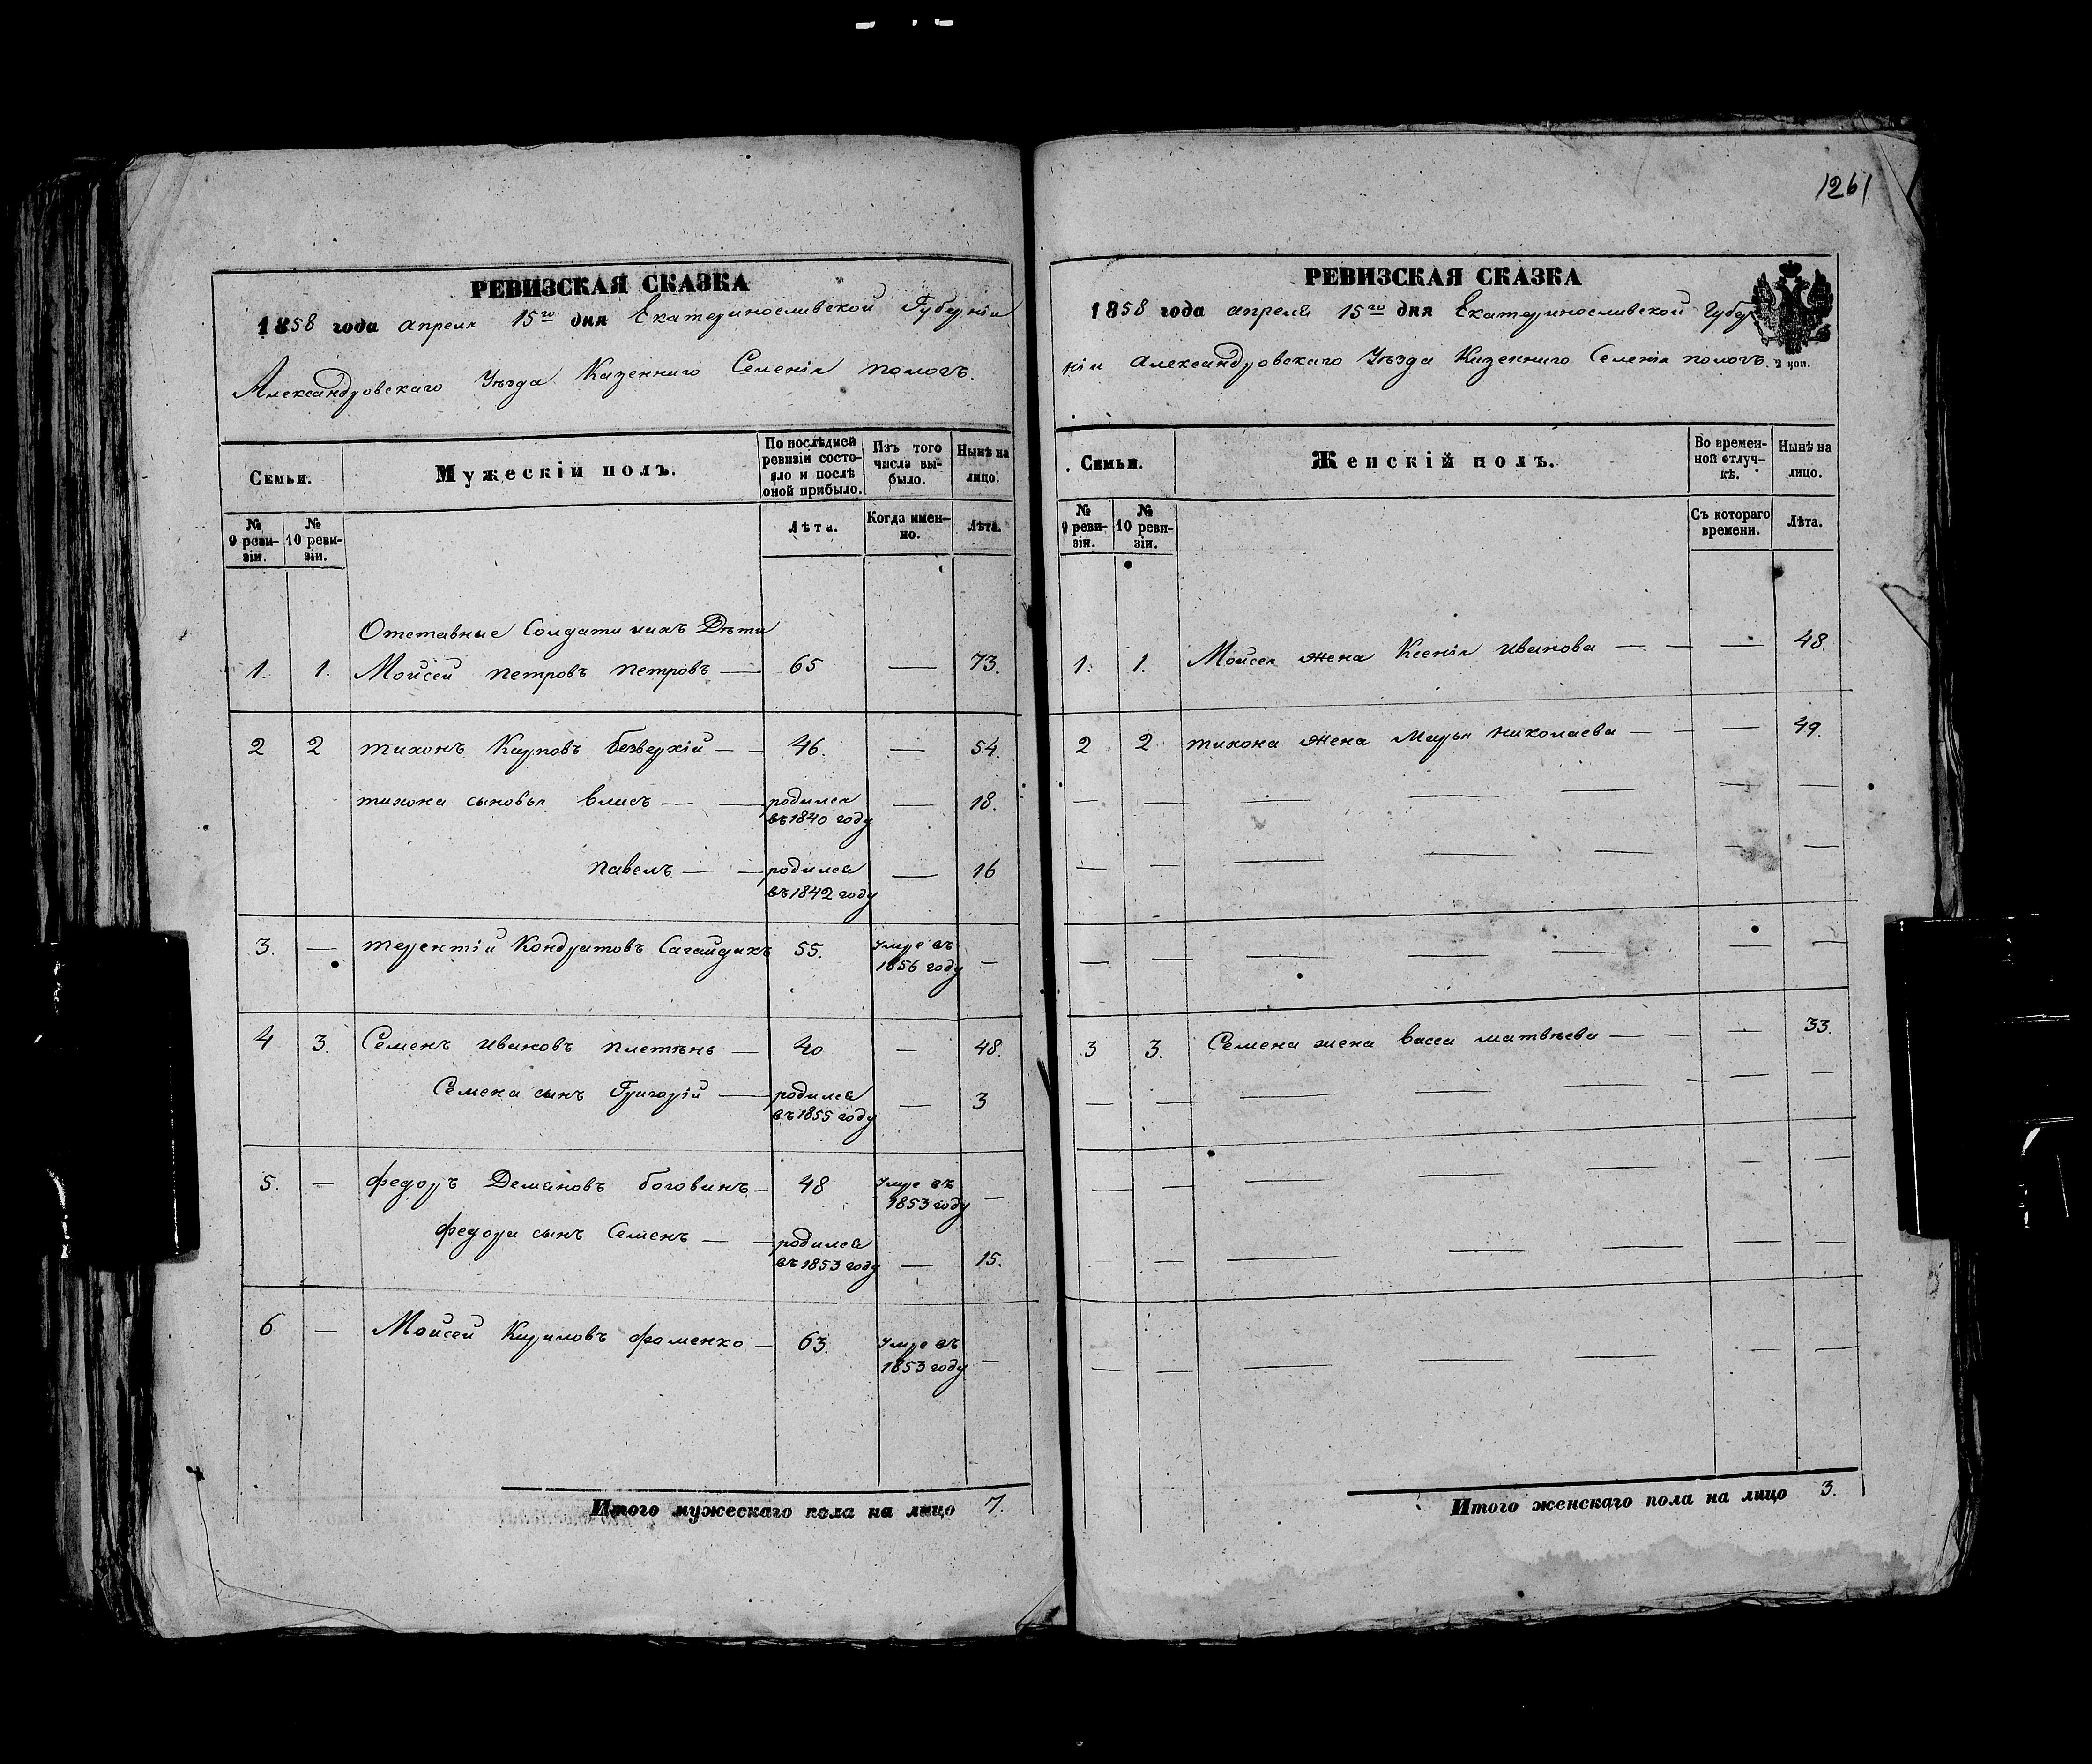 1261
РЕВИЗСКАЯ СКАЗКА
1858 года апреля 15го дня Екатеринославской Губерніи
Александровскаго Уѣзда Казеннаго Селенія пологъ.
Семьи.
Мужескій полъ.
По послѣдней ревизіи состояло и послѣ оной прибыло.
Изъ того числа выбыло.
Нынѣ на лицо.
№ 9 ревизіи.
№ 10 ревизіи.
Лѣта.
Когда именно.
Лѣта.
Отставные Солдати ихъ Дѣти
1. 1. Мойсей петровъ петровъ — 65 — 73.
2 2 тихонъ Карповъ безверхій — — 46. — 54.
тихона сыновья власъ — — родился въ 1840 году — 18.
павелъ — — родился въ 1842 году — 16
3. — терентій Кондратовъ Сагайдакъ 55. умре въ 1856 году —
4 3. Семенъ ивановъ плетѣнь — 40 — 48.
Семена сынъ Григорій — родился въ 1855 году — 3
5. — федоръ Демяновъ боговинъ — 48 умре въ 1853 году —
федора сынъ Семенъ — — родился въ 1853 году — 15.
6 — Мойсей Кириловъ фоменко — 63. умре въ 1853 году —
Итого мужескаго пола на лицо 7.
РЕВИЗСКАЯ СКАЗКА
1858 года апреля 15го дня Екатеринославской Губер
ніи Александровскаго Уѣзда Казеннаго Селенія пологъ.
2 коп.
Семьи.
Женскій полъ.
Во временной отлучкѣ.
Нынѣ на лицо.
№ 9 ревизіи.
№ 10 ревизіи.
Съ котораго времени.
Лѣта.
1. 1. Мойсея жена Ксенія иванова — — — 48.
2 2 тихона жена Марья николаева — — — 49.
3 3. Семена жена васса матвѣева — — — 33.
Итого женскаго пола на лицо 3.